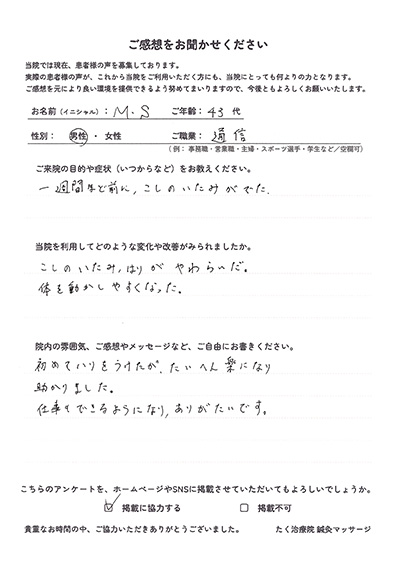 ご感想をお聞かせください
当院では現在、患者様の声を募集しております。
実際の患者様の声が、これから当院をご利用いただく方にも、当院にとっても何よりの力となります。
ご感想を元により良い環境を提供できるよう努めてまいりますので、今後ともよろしくお願いいたします。
お名前(イニシャル)：M.S ご年齢：43代
性別： 男性 ・ 女性 ご職業：通信
(例：事務職・営業職・主婦・スポーツ選手・学生など／空欄可)
ご来院の目的や症状（いつからなど）をお教えください。
一週間ほど前に、こしのいたみがでた.
当院を利用してどのような変化や改善がみられましたか。
こしのいたみ、はりが やわらいだ。
体を動かしやすくなった。
院内の雰囲気、ご感想やメッセージなど、ご自由にお書きください。
初めてハリをうけたが、たいへん楽になり
助かりました。
仕事もできるようになり、ありがたいです。
こちらのアンケートを、ホームページやSNSに掲載させていただいてもよろしいでしょうか。
掲載に協力する 掲載不可
貴重なお時間の中、ご協力いただきありがとうございました。 たく治療院 鍼灸マッサージ